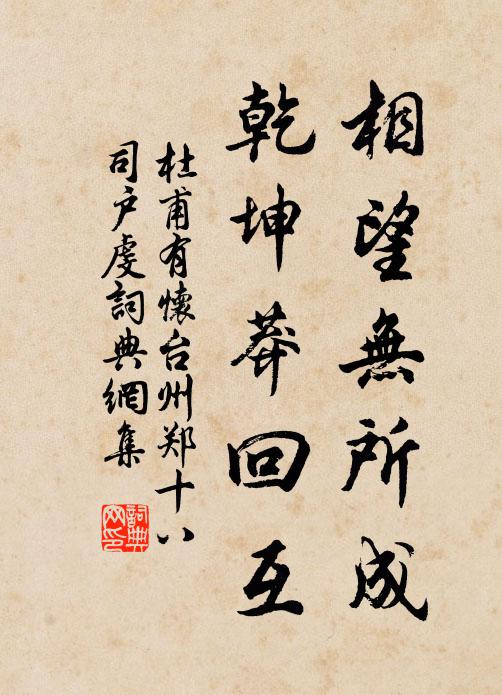 相望無所成
乾坤莽回互
杜甫有懷台州郑十八
司户虔詞典網集
詞典
网印